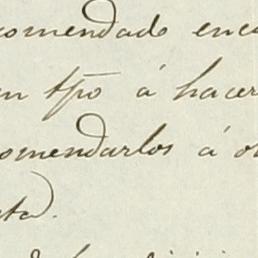 comendado enca
en tpo á hacer
omendarlos á o
ta.